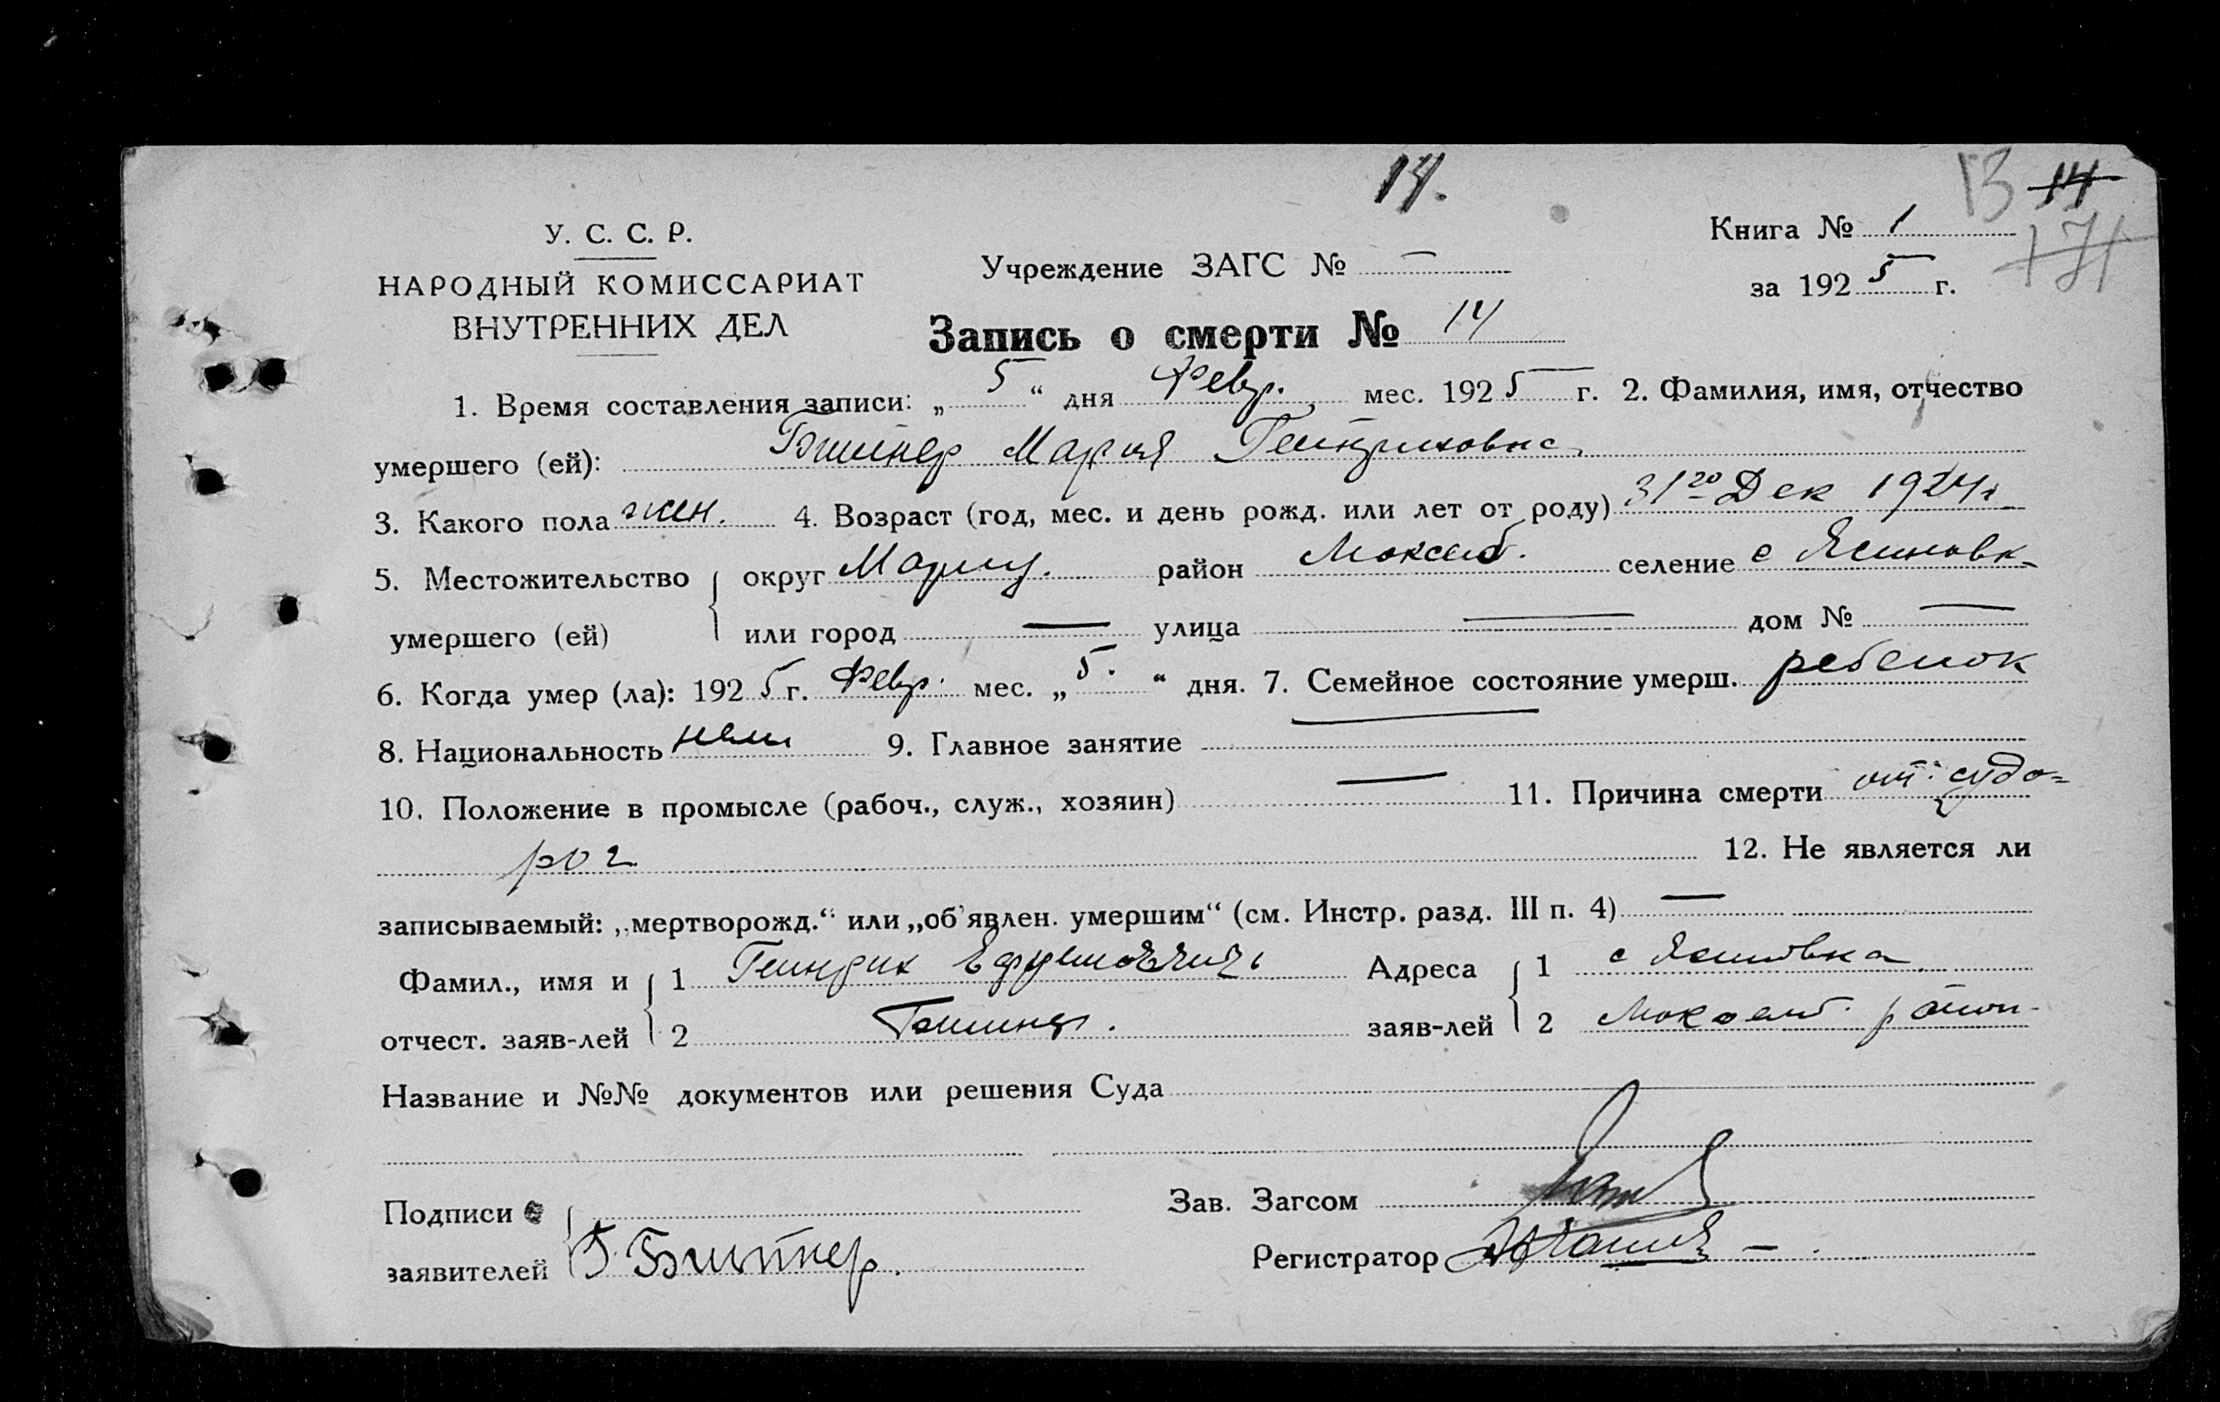 14.
Книга № 1 13 14
У. С. С. Р.
НАРОДНЫЙ КОМИССАРИАТ
ВНУТРЕННИХ ДЕЛ
Учреждение ЗАГС № —
за 1925 г.
Запись о смерти № 14
1. Время составления записи: „5“ дня Февр. мес. 1925 г. 2. Фамилия, имя, отчество
умершего (ей): Битнер Мария Гейнриховна
3. Какого пола жен. 4. Возраст (год, мес. и день рожд. или лет от роду) 31го Дек 1924 г
5. Местожительство округ Мариуп. район селение с Ясиновк-
умершего (ей) или город — улица — дом № —
6. Когда умер (ла): 1925 г. Февр. мес. „5.“ дня. 7. Семейное состояние умерш. ребенок
8. Национальность нем 9. Главное занятие —
10. Положение в промысле (рабоч., служ., хозяин) — 11. Причина смерти от судо=
рог 12. Не является ли
записываемый: „мертворожд.“ или „об'явлен. умершим“ (см. Инстр. разд. III п. 4) —
Фамил., имя и 1 Гейнрих Ефремович Адреса 1 с Ясиновка
отчест. заяв-лей 2 Битнер. заяв-лей 2 район-
Название и №№ документов или решения Суда
Подписи Зав. Загсом
заявителей Г. Битнер. Регистратор